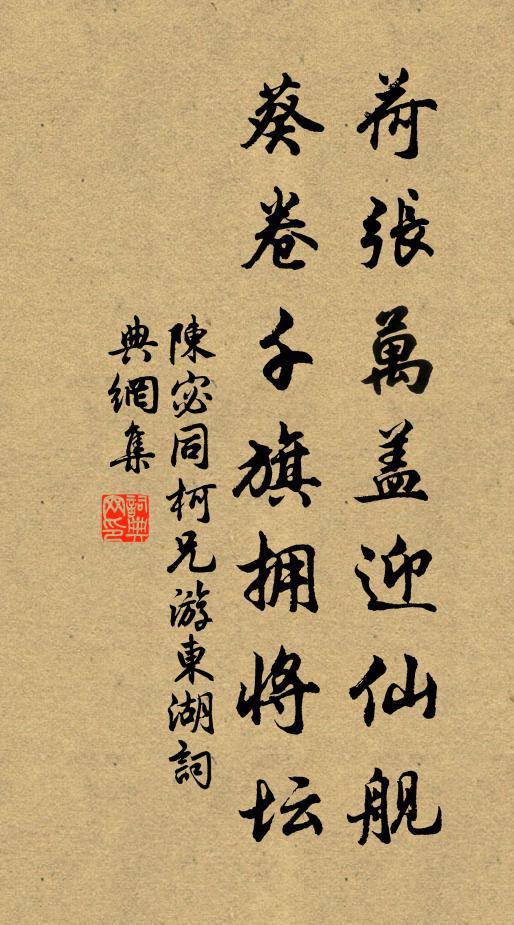 荷張萬盖迎仙舰
葵卷千旗拥将坛
陳宓同柯兄游東湖詞
典網集
詞典
网印